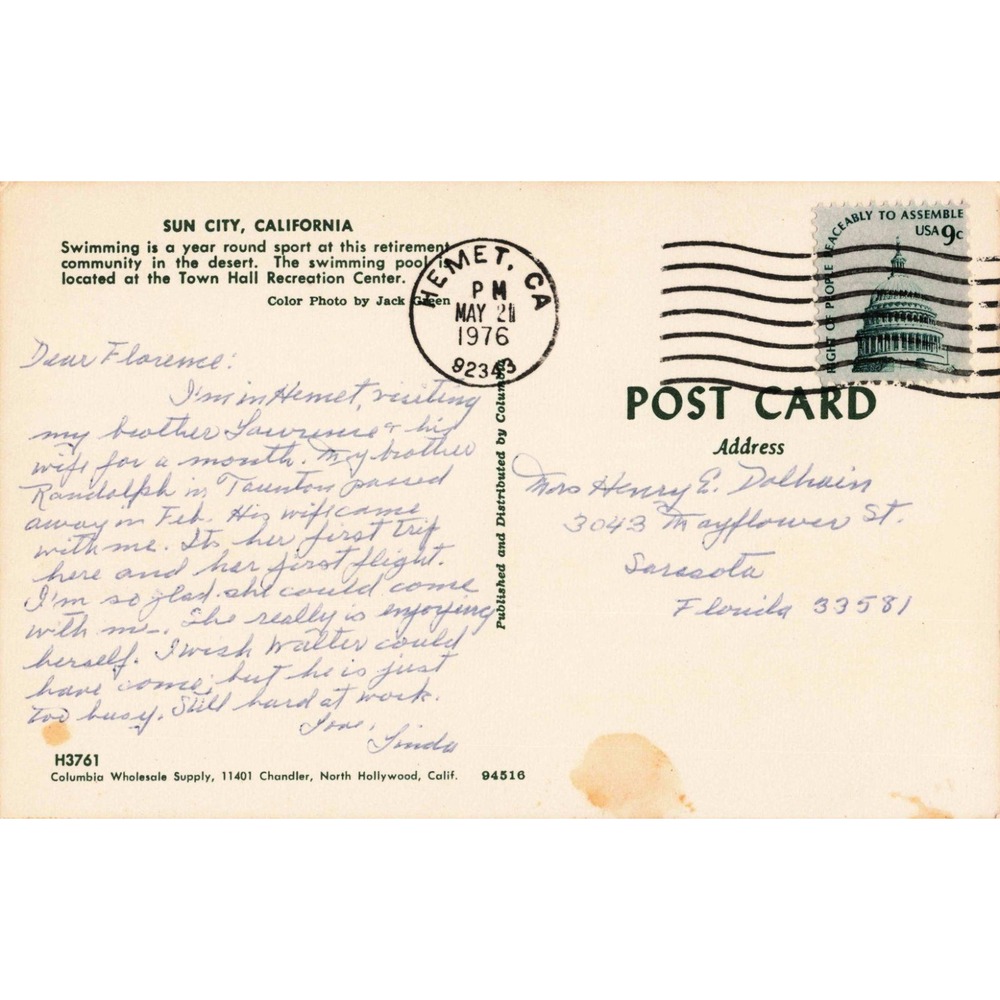 SUN CITY, CALIFORNIA
Swimming is a year round sport at this retirement
community in the desert. The swimming pool is
located at the Town Hall Recreation Center.
Color Photo by Jack Green
HEMET, CA
PM
MAY 21
1976
92343
RIGHT OF PEOPLE PEACEABLY TO ASSEMBLE
USA 9c
Dear Florence:
I'm in Hemet, visiting
my brother Lawrence & his
wife for a month. My brother
Randolph in Taunton passed
away in Feb. His wife came
with me. Its her first trip
here and her first flight.
I'm so glad she could come
with me. She really is enjoying
herself. I wish Walter could
have come, but he is just
too busy. Still hard at work.
Love,
Linda
Published and Distributed by Columbia
POST CARD
Address
Mrs Henry E. Dolhain
3043 Mayflower St.
Sarasota
Florida 33581
H3761
Columbia Wholesale Supply, 11401 Chandler, North Hollywood, Calif. 94516